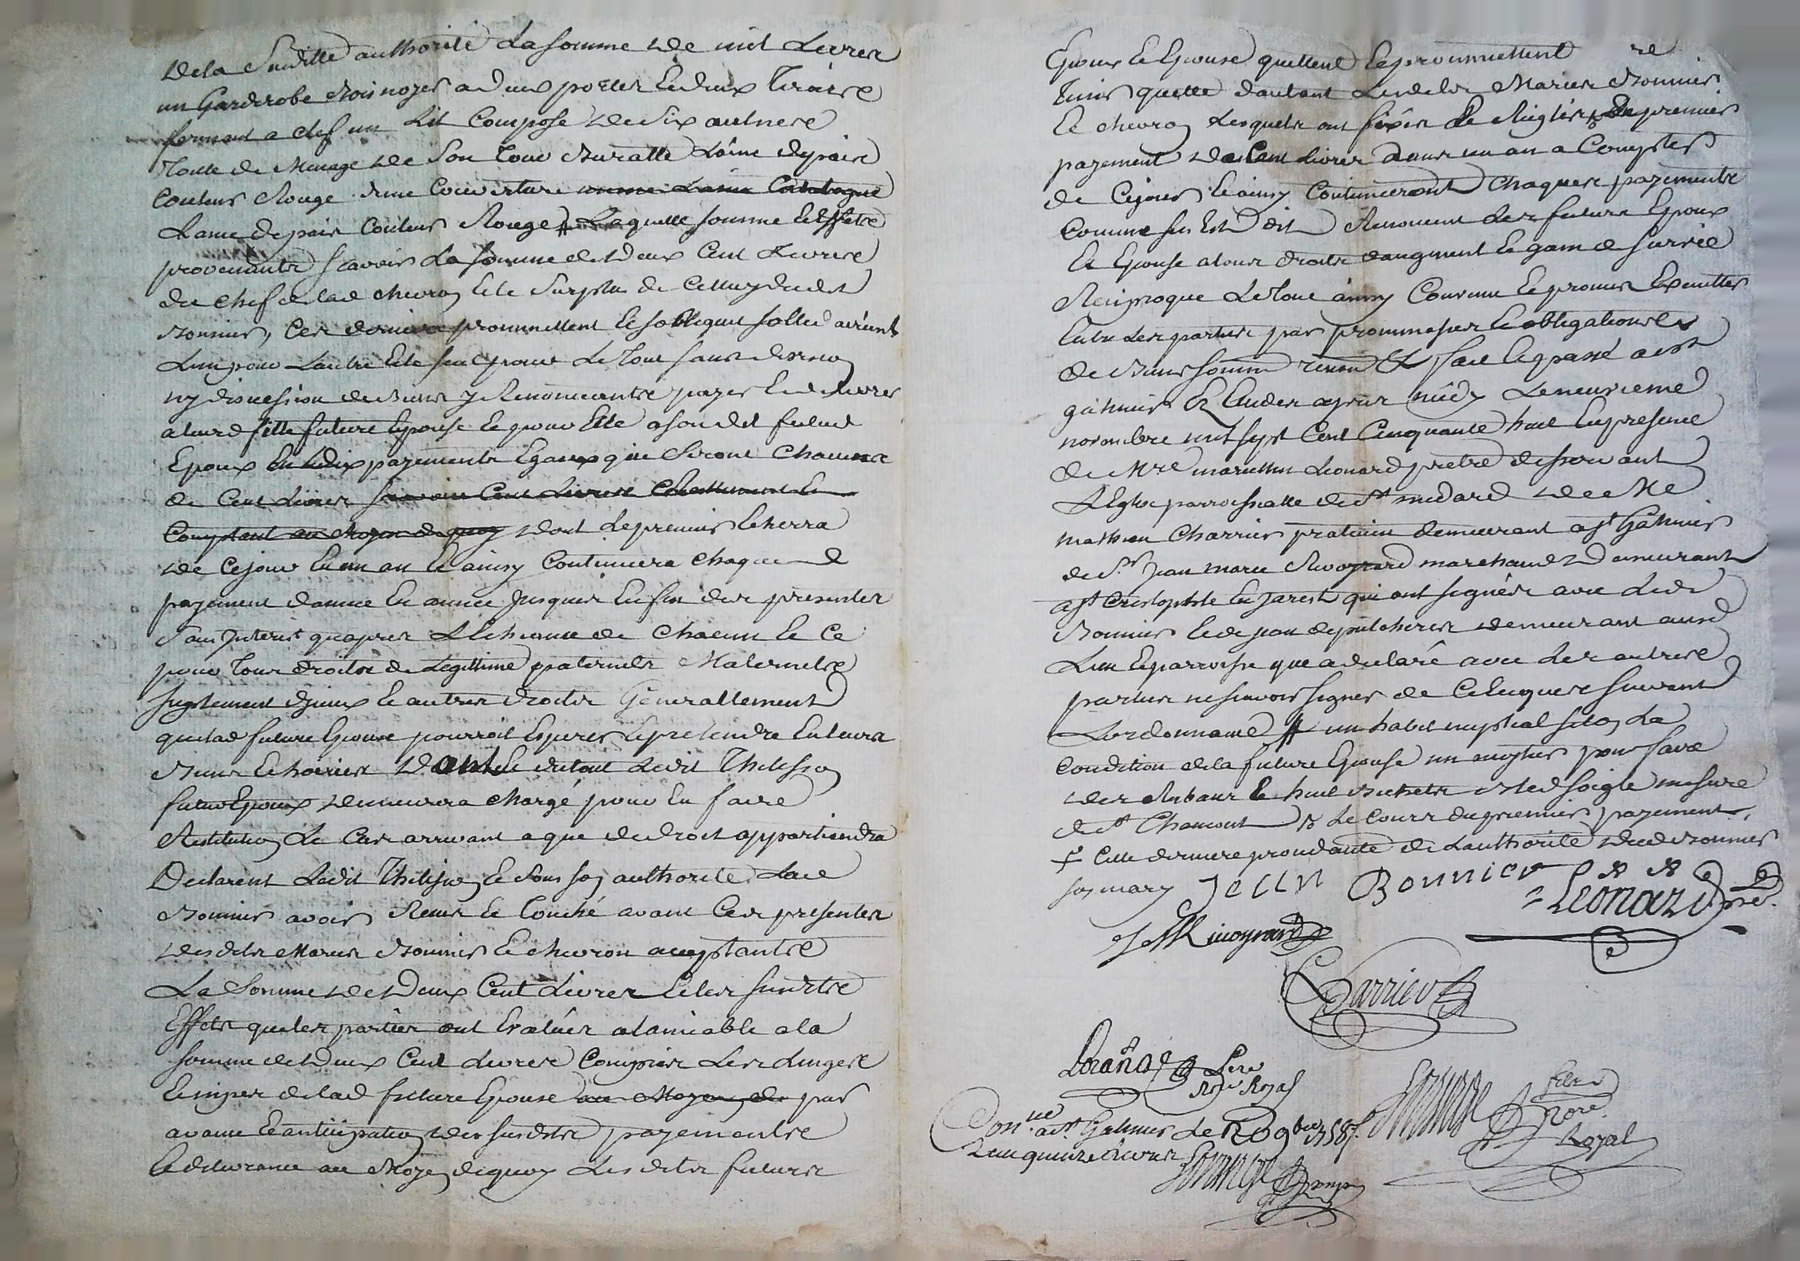 de la Susditte authorité La somme de mil Livres
un Garderobe Bois noyer a deux portes et deux Tiroirs
fermant a clef un Lit Composé de Six aulnes
Toille de Menage de Son Tour Buratte Laine depaire
Couleur Rouge d'une Couverture Catalogne
Laine depair Couleur Rouge # Laquelle somme et Effets
provenants scavoir La somme de deux Cent Livres
du Chef de lad chevron et le Surplus de Celluy dudit
Bonnier, Ces derniers prommettent et s'obligent sollidairement
L'un pour L'autre et le seul pour Le Tout sans division
ny discussion de biens y Renoncants payer et delivrer
a leurd fille future Epouse et pour Elle a son dit futur
Epoux En dix payements Egaux qui Seront Chacun
de Cent Livres scavoir Cent Livres
Comptant au Moyen dequoy dont Le premier Echerra
de Cejour En un an et ainsy Continuera chaque
payement d'année En année Jusques En fin des presentes
Sans Interest qu'apres L'Echeance de Chacun Et Ce
pour Tous droits de Legittime paternels Maternels
suplement d'yceux et autres droits Generallement
quelad future Epouse pourroit Esperer et pretendre En leurs
Biens et hoiries Dont et du tout Ledit Thelisson
futur Epoux demeurera chargé pour En faire
Restitution Le Cas arrivant a que de droit appartiendra
Declarent Ledit Thelisson et Sous son authorité Lad
Bonnier avoir Reçus et Touché avant Ces presentes
desdits Mariés Bonnier et chevron acceptants
La Somme de Deux Cent Livres et les susdits
Effets que les parties ont Evalués a l'amiable a la
somme de Deux Cent Livres Compris Les Linges
et nipes de lad future Epouse au Moyen de par
avance et anticipation des susdits payements
et delivrance au Moyen dequoy Lesdits futurs
Epoux et Epouse quittent et prommettent
Tenir quitte d'autant Lesdits Mariés Bonnier
et chevron Lesquels ont fixés et Reglés Le premier
payement de Cent Livres dans un an a Compter
de Cejour et ainsy Continueront Chaques payements
Comme sus Est dit Renoncent Les futurs Epoux
et Epouse a tous droits d'augment et gain de Survie
Reciproque Le Tout ainsy Convenu et promis Executter
Entre Les parties par prommesses et obligations
de Biens somm renon & fait et passé a st
galmier Ez Etudes apres midy Le neufvieme
novembre mil sept Cent Cinquante huit En presence
de Mre Leonard prêtre desservant
L'Eglise parroissialle de St medard de Me
mathieu Charrier praticien demeurant a st Galmier
de Sr Jean marie Rivoyrard marchand demeurant
a st Cristophle En Jarest qui ont signés avec Led
Bonnier demeurant aud
Lieu et parroisse que a declaré avec Les autres
parties ne scavoir signer de Ce Enquis suivant
L'ordonnance # un habit nuptial selon La
Condition de la future Epouse
et huit Bichets Bled seigle mesure
de St Chamont Le Cours du premier payement,
Cette derniere procedante de L'authorité dud Bonnier
son mary Jean Bonnier Leonard pre.
J M Rivoyrard
Charrier
Nore Royal
Nore
Royal
Conlé a St Galmier Le 20 9bre 1758